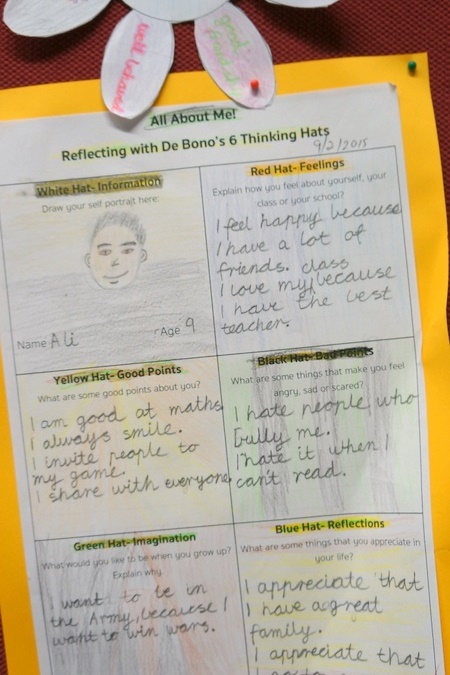 well behaved
good
friend
All About Me!
Reflecting with De Bono's 6 Thinking Hats
9/2/2015
White Hat- Information
Draw your self portrait here:
Name Ali
Age 9
Red Hat- Feelings
Explain how you feel about yourself, your
class or your school?
I feel happy because
I have a lot of
friends. class
I love my, because
I have the best
teacher.
Yellow Hat- Good Points
What are some good points about you?
I am good at maths
I always smile.
I invite people to
my game.
I share with everyone
Black Hat- Bad Points
What are some things that make you feel
angry, sad or scared?
I hate people who
bully me.
I hate it when I
can't read.
Green Hat- Imagination
What would you like to be when you grow up?
Explain why.
I want to be in
the Army, because I
want to win wars.
Blue Hat- Reflections
What are some things that you appreciate in
your life?
I appreciate that
I have a great
family.
I appreciate that